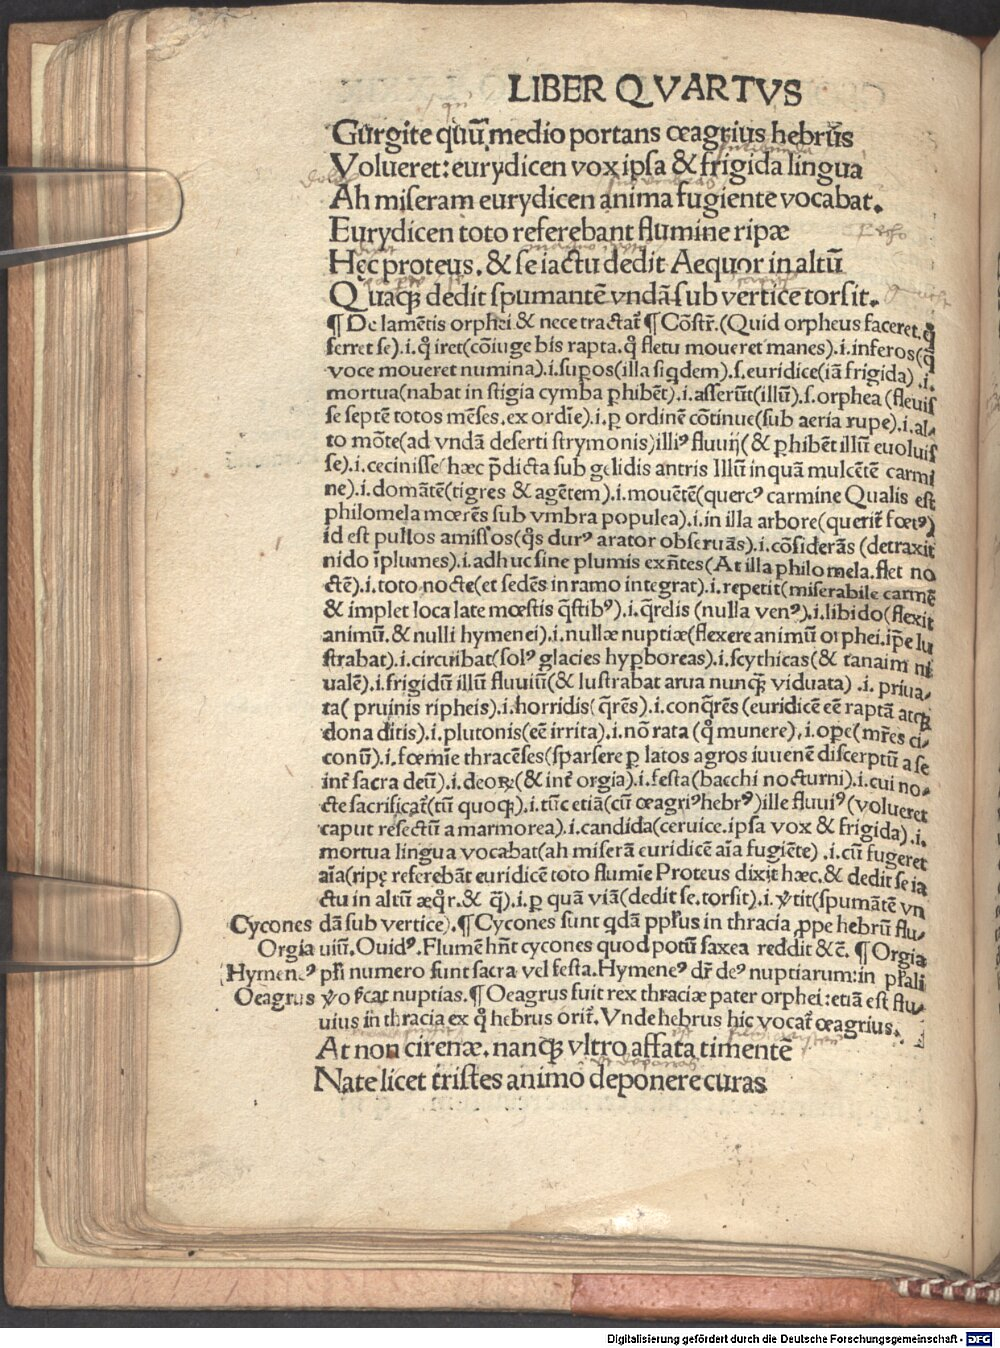 LIBER QVARTVS
Gurgite quū medio portans œagrius hebrus
Volueret: eurydicen vox ipſa & frigida lingua
Ah miſeram eurydicen anima fugiente vocabat.
Eurydicen toto referebant flumine ripæ
Hęc proteus. & ſe iactu dedit Aequor in altū
Quaqꝫ dedit ſpumantē vndā ſub vertice torſit.
¶ De lamētis orphei & nece tractat᷑ ¶ Cōſtr̄. (Quid orpheus faceret. q̄
ferret ſe).i. q̊ iret(cōiuge bis rapta. q̊ fletu moueret manes).i. inferos(q̄
voce moueret numina).i. ſuꝑos(illa ſiqdem).ſ. euridice(iā frigida) .i.
mortua(nabat in ſtigia cymba ꝑhibēt).i. aſſerūt(illū).ſ. orphea (fleuiſ
ſe ſeptē totos mēſes. ex ordīe).i. ꝑ ordinē cōtinue(ſub aeria rupe).i. al⸗
to mōte(ad vndā deſerti ſtrymonis)illiꝰ fluuij(& ꝑhibēt illū euoluiſ
ſe).i. ceciniſſe(hæc p̄dicta ſub gelidis antris Illū inquā mulcētē carmi
ne).i. domātē(tigres & agētem).i. mouētē(quercꝰ carmine Qualis eſt
philomela mœrēs ſub vmbra populea).i. in illa arbore(querit᷑ fœtꝰ)
id eſt pullos amiſſos(q̊s durꝰ arator obſeruās).i. cōſiderās (detraxit
nido īplumes).i. adhuc ſine plumis exn̄tes(At illa philomela. flet no
ctē).i. toto nocte(et ſedēs in ramo integrat).i. repetit(miſerabile carmē
& implet loca late mœſtis q̄ſtibꝰ).i. q̄relis (nulla venꝰ).i. libido(flexit
animū. & nulli hymenei).i. nullæ nuptiæ(flexere animū orphei. ip̄e lu
ſtrabat).i. circuibat(ſolꝰ glacies hyꝑboreas).i. ſcythicas(& tanaim ni
ualē).i. frigidū illū fluuiū(& luſtrabat arua nunqꝫ viduata) .i. priua⸗
ta( pruinis ripheis).i. horridis( q̄rēs).i. conq̄rēs (euridicē eē raptā atqꝫ
dona ditis).i. plutonis(eē irrita).i. nō rata (q̊ munere).i. ope(mr̄es ci⸗
conū).i. fœmīe thracēſes(ſparſere ꝑ latos agros iuuenē diſcerptū a ſe
int᷑ ſacra deū).i. deoꝝ(& int᷑ orgia).i. feſta(bacchi nocturni).i. cui no⸗
cte ſacrificat᷑(tū quoqꝫ).i. tūc etiā(cū œagriꝰ hebrꝰ)ille fluuiꝰ(volueret
caput reſectū a marmorea).i. candida(ceruice. ipſa vox & frigida) .i.
mortua lingua vocabat(ah miſerā euridicē aīa fugiēte) .i. cū fugeret
aīa(ripę referebāt euridicē toto flumīe Proteus dixit hæc. & dedit ſe ia
ctu in altū æq̊r. & q̄).i. ꝑ quā viā(dedit ſe. torſit).i. v̓tit(ſpumātē vn
Cycones dā ſub vertice). ¶ Cycones ſunt qdā ppl̓us in thracia ꝓpe hebrū flu⸗
Orgia uiū. Ouidꝰ. Flumē hn̄t cycones quod potū ſaxea reddit &c̄. ¶ Orgia
Hymeneꝰ pl̓i numero ſunt ſacra vel feſta. Hymeneꝰ dr̄ deꝰ nuptiarum: in pl̓ali
Oeagrus v̓o ſ̓cat nuptias. ¶ Oeagrus fuit rex thraciæ pater orphei: etiā eſt flu⸗
uius in thracia ex q̊ hebrus orit᷑. Vnde hebrus hic vocat᷑ œagrius.
At non cirenæ. nanqꝫ vltro affata timentē
Nate licet triſtes animo deponere curas
Digitalisierung gefördert durch die Deutsche Forschungsgemeinschaft - DFG